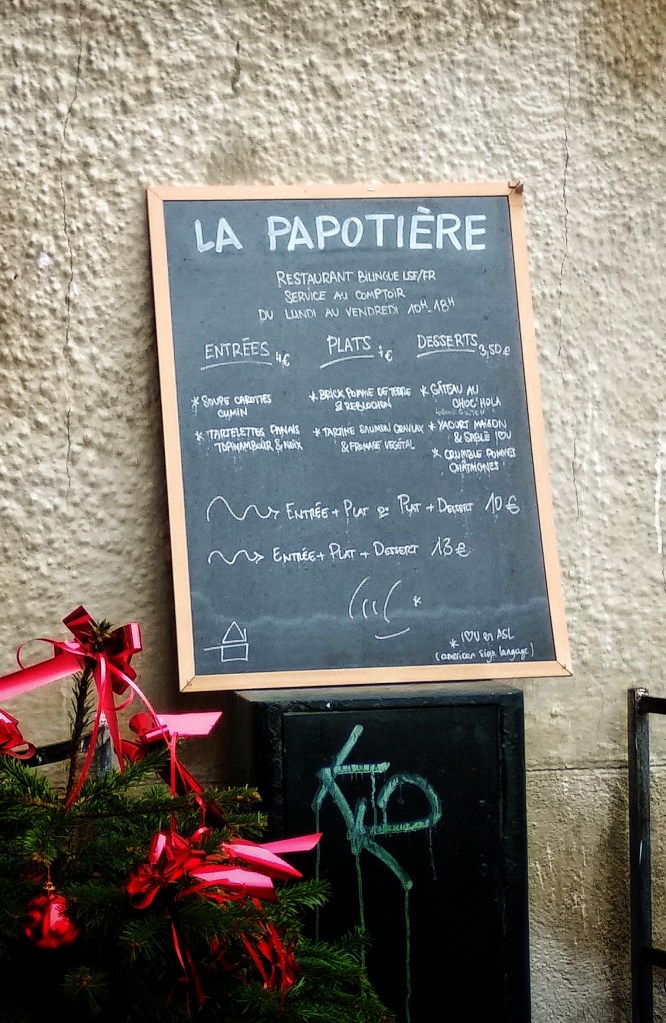 LA PAPOTIÈRE
RESTAURANT BILINGUE LSF/FR
SERVICE AU COMPTOIR
DU LUNDI AU VENDREDI 10H-18H
ENTRÉES 4€
* SOUPE CAROTTES
CUMIN
* TARTELETTES PANAIS
TOPINAMBOUR & NOIX
PLATS 7€
* BRICK POMME DE TERRE
& REBLOCHON
* TARTINE SAUMON GRAVLAX
& FROMAGE VEGÉTAL
DESSERTS 3,50€
* GÂTEAU AU
CHOC'HOLA
* YAOURT MAISON
& SABLÉ I♡U
* CRUMBLE POMMES
CHÂTAIGNES
ENTRÉE + PLAT OU PLAT + DESSERT 10€
ENTRÉE + PLAT + DESSERT 13€
*
* I♡U en ASL
(american sign langage)